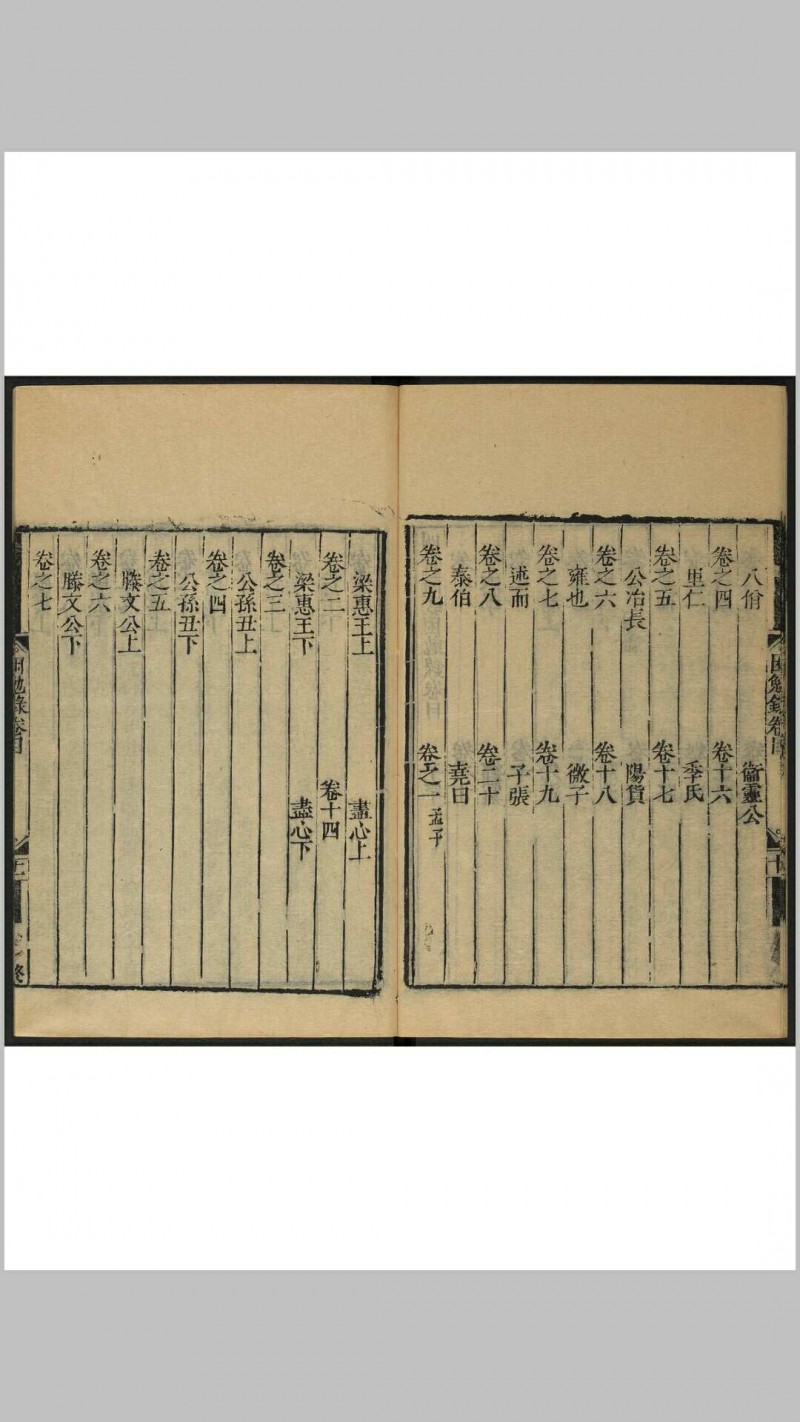 困勉錄卷目
八佾 衞靈公
卷之四 卷十六
里仁 季氏
卷之五 卷十七
公冶長 陽貨
卷之六 卷十八
雍也 微子
卷之七 卷十九
述而 子張
卷之八 卷二十
泰伯 堯曰
卷之九 卷之一 孟子
梁惠王上 盡心上
卷之二 卷十四
梁惠王下 盡心下
卷之三
公孫丑上
卷之四
公孫丑下
卷之五
滕文公上
卷之六
滕文公下
卷之七
困勉錄卷目
終